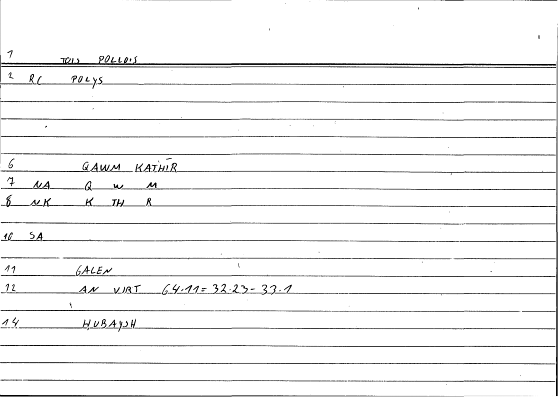 1 TOIS POLLOIS
2 RC POLYS
6 QAWM KATHĪR
7 NA Q W M
8 NK K TH R
10 SA
11 GALEN
12 AN VIRT 64.11= 32.23- 33.1
14 HUBAYSH